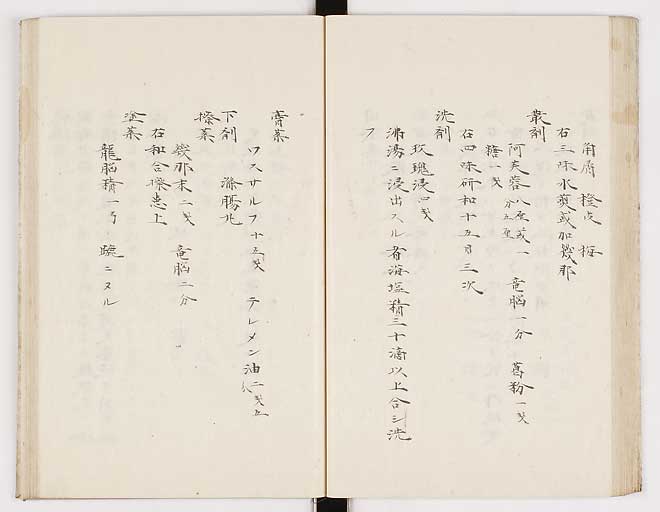 角屑 橙皮 梅
右三味水煎或加幾那
散剤
阿芙蓉 八厘或一分五厘 竜脳一分 葛粉一戔
糖一戔
右四味研和十五日三次
洗剤
玫瑰浸四戔
沸湯ニ浸出スル者海塩精三十滴以上合シ洗
フ
膏薬
ワスサルフ十五戔 テレメン油二戔五
下剤 滌腸兆
擦薬
幾那末二戔 竜脳二分
右和合擦患上
塗薬
龍脳精一弓 蹠ニヌル